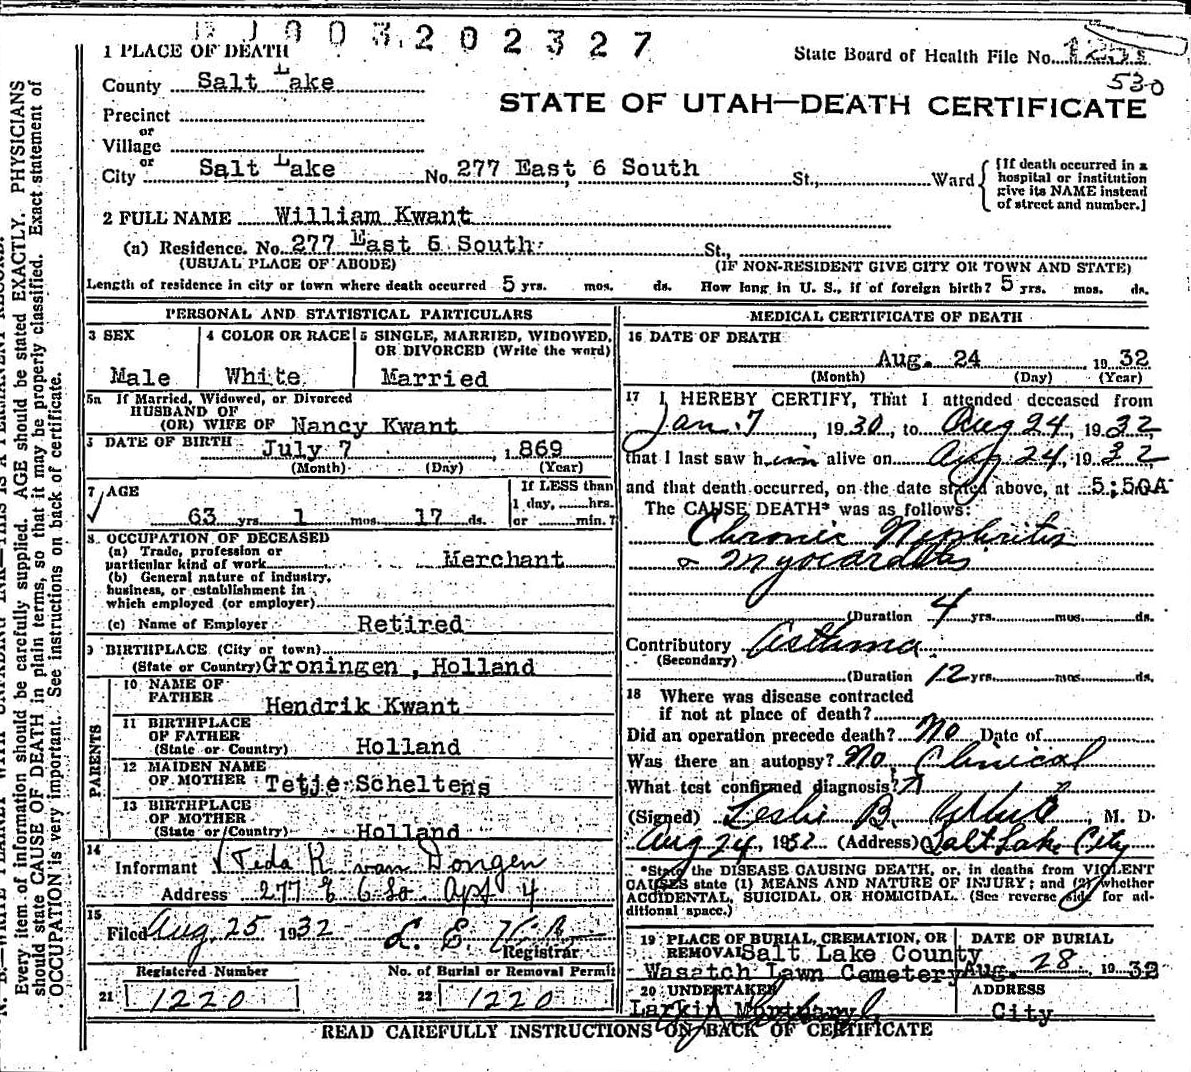 003202327
1 PLACE OF DEATH
State Board of Health File No.
530
County Salt Lake
STATE OF UTAH—DEATH CERTIFICATE
Precinct
or
Village
or
City Salt Lake No. 277 East 6 South St., Ward
[If death occurred in a
hospital or institution
give its NAME instead
of street and number.]
2 FULL NAME William Kwant
(a) Residence. No. 277 East 6 South St.,
(USUAL PLACE OF ABODE) (IF NON-RESIDENT GIVE CITY OR TOWN AND STATE)
Length of residence in city or town where death occurred 5 yrs. mos. ds. How long in U. S., if of foreign birth? 5 yrs. mos. ds.
PERSONAL AND STATISTICAL PARTICULARS
3 SEX
Male
4 COLOR OR RACE
White
5 SINGLE, MARRIED, WIDOWED,
OR DIVORCED (Write the word)
Married
5a If Married, Widowed, or Divorced
HUSBAND OF
(OR) WIFE OF Nancy Kwant
DATE OF BIRTH July 7, 1869
(Month) (Day) (Year)
7 AGE
63 yrs. 1 mos. 17 ds.
If LESS than
1 day, hrs.
or min.?
8. OCCUPATION OF DECEASED
(a) Trade, profession or
particular kind of work Merchant
(b) General nature of industry,
business, or establishment in
which employed (or employer)
(c) Name of Employer Retired
9 BIRTHPLACE (City or town)
(State or Country) Groningen, Holland
PARENTS
10 NAME OF
FATHER Hendrik Kwant
11 BIRTHPLACE
OF FATHER
(State or Country) Holland
12 MAIDEN NAME
OF MOTHER Tetje Scheltens
13 BIRTHPLACE
OF MOTHER
(State or Country) Holland
14
Informant Teda R van Dongen
Address 277 E 6 So. Apt 4
15
Filed Aug 25 1932 L. E.
Registrar
Registered Number No. of Burial or Removal Permit
21 1220 22 1220
MEDICAL CERTIFICATE OF DEATH
16 DATE OF DEATH
Aug. 24 1932
(Month) (Day) (Year)
17 I HEREBY CERTIFY, That I attended deceased from
Jan. 7, 1930, to Aug 24, 1932,
that I last saw him alive on Aug 24, 1932,
and that death occurred, on the date stated above, at 5;50A
The CAUSE DEATH* was as follows:
Chronic Nephritis
& Myocarditis
(Duration 4 yrs. mos. ds.
Contributory Asthma
(Secondary)
(Duration 12 yrs. mos. ds.
18 Where was disease contracted
if not at place of death?
Did an operation precede death? No Date of
Was there an autopsy? No Clinical
What test confirmed diagnosis?
(Signed) Leslie B. , M. D
Aug 24, 1932 (Address) Salt Lake City
*State the DISEASE CAUSING DEATH, or, in deaths from VIOLENT
CAUSES state (1) MEANS AND NATURE OF INJURY; and (2) whether
ACCIDENTAL, SUICIDAL OR HOMICIDAL. (See reverse side for ad-
ditional space.)
19 PLACE OF BURIAL, CREMATION, OR
REMOVAL Salt Lake County
Wasatch Lawn Cemetery
DATE OF BURIAL
Aug. 28, 1932
20 UNDERTAKER
Larkin Mortuary
ADDRESS
City
READ CAREFULLY INSTRUCTIONS ON BACK OF CERTIFICATE
Every item of information should be carefully supplied. AGE should be stated EXACTLY. PHYSICIANS
should state CAUSE OF DEATH in plain terms, so that it may be properly classified. Exact statement of
OCCUPATION is very important. See instructions on back of certificate.